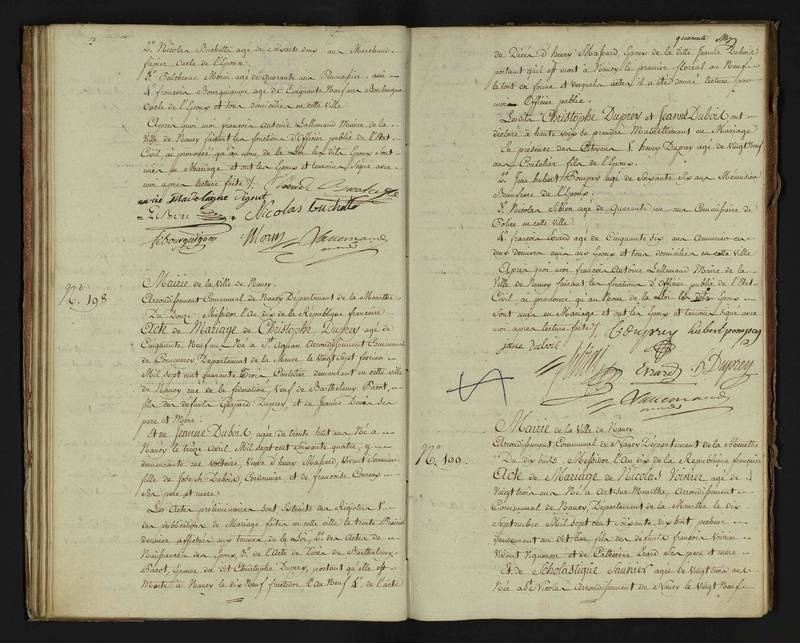 2°. Nicolas Buchette agé de soixante deux ans Marchand
fripier oncle de l'Epoux.
3°. Morin agé de quarante ans
4°. françois Bourguignon agé de Cinquante Neuf ans Boulanger
oncle de l'Epoux et tous domiciliés en cette Ville.
Après quoi moi françois antoine Lallemand Maire de la
Ville de Nancy faisant les fonctions d'Officier public de l'Etat
Civil, ai prononcé qu'au nom de la Loi les dits Epoux sont
unis en Mariage et ont les Epoux et temoins signé avec
moi après lecture faite
marie Madelagne
Nicolas
febourguignon Morin Lallemand
N°. 198
Mairie de la Ville de Nancy.
Arrondissement Communal de Nancy Département de la Meurthe
Du Messidor l'An dix de la République française
Acte de Mariage de Christophe Duprey agé de
Cinquante Neuf ans Né à St. Agnan Arrondissement Communal
de Commercy Département de la Meuse le vingt sept fevrier
Mil sept cent quarante trois Coutelier demeurant en cette ville
de Nancy rue de la federation, Veuf de Barthelemy Bicot,
fils des défunts Gaspard Duprey, et de Jeanne ses
pere et Mere.
Et de Jeanne Dubois agée de trente huit ans Né à
Nancy le treize avril Mil sept cent soixante quatre, y
demeurante rue voltaire, Veuve d'henry Massard, vivant
fille de Joseph Dubois Cordonnier et de francoise
ses pere et mere.
Les Actes préliminaires sont Extraits des Registres 1°.
des publications de Mariage faites en cette ville le trente Prairial
dernier affichées aux termes de la Loi, 2°. des Actes de
Naissances des Epoux, 3°. de l'Acte de Décès de Barthelemy
Bicot, Epouse du dit Christophe Duprey, portant qu'elle est
Morte à Nancy le dix Neuf fructidor l'an Neuf 4°. de l'acte
quarante
de Décès d'henry Massard, Epoux de la ditte Jeanne Dubois
portant qu'il est mort à Nancy le premier floreal an Neuf
le tout en forme et desquels actes il a été donné lecture par
moi Officier public.
Les dits Christophe Duprey et Jeanne Dubois ont
déclaré à haute voix se prendre Mutuellement en Mariage
En presence des Citoyens 1°. henry Duprey agé de Vingt Neuf
ans Coutelier fils de l'Epoux.
2°. Jean hubert Pompey agé de Soixante Six ans Menuisier
Beaufrere de l'Epoux.
3°. Nicolas agé de Quarante un ans Commissaire de
Police en cette ville
4°. françois Evrard agé de Cinquante six ans Armurier ces
deux derniers amis aux Epoux et tous domiciliés en cette Ville
Après quoi moi françois Antoine Lallemand Maire de la
Ville de Nancy faisant les fonctions d'Officier public de l'Etat
Civil ai prononcé qu'au Nom de la Loi les dits Epoux
sont unis en Mariage et ont les Epoux et temoins signé avec
moi après lecture faite
C Duprey hubert pompey
jane dubois
Evrard h Duprey
Lallemand
N°. 199.
Mairie de la Ville de Nancy.
Arrondissement Communal de Nancy Département de la Meurthe
Du dix huit Messidor l'An dix de la République française
Acte de Mariage de Nicolas Voinier agé de
Vingt trois ans Né à Art-sur-Meurthe, Arrondissement
Communal de Nancy, Département de la Meurthe le dix
Septembre Mil sept cent soixante dix huit
demeurant au dit lieu fils des defunts françois Voinier
Vivant Vigneron et de Catherine ses pere et mere
Et de Scholastique Saunier agée de Vingt trois ans
Née à St. Nicolas Arrondissement de Nancy le Vingt Neuf